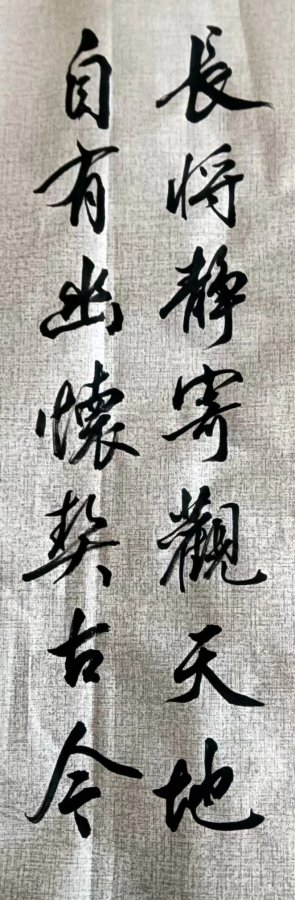 長将静寄觀天地
自有幽懷契古今